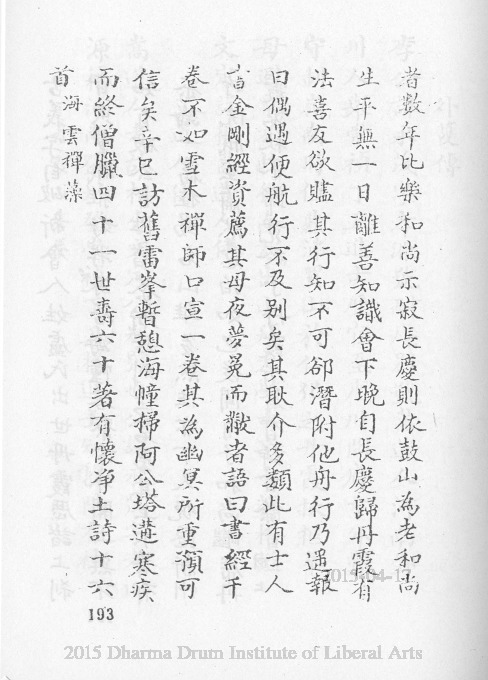 者數年比樂和尚示寂長慶則依鼓山為老和尚
生平無一日離善知識會下晚自長慶歸丹霞有
法喜友欲贐其行知不可卻潛附他舟行乃遥報
曰偶遇便航行不及別矣其耿介多類此有士人
書金剛經資薦其母夜夢冕而黻者語曰書經千
卷不如雪木禪師口宣一卷其為幽冥所重可
信矣辛巳訪舊雷峯暫憩海幢掃阿公塔遘寒疾
而終僧臘四十一世壽六十著有懷淨土詩十六
首海雲禪藻
193
2015-04-17
2015 Dharma Drum Institute of Liberal Arts